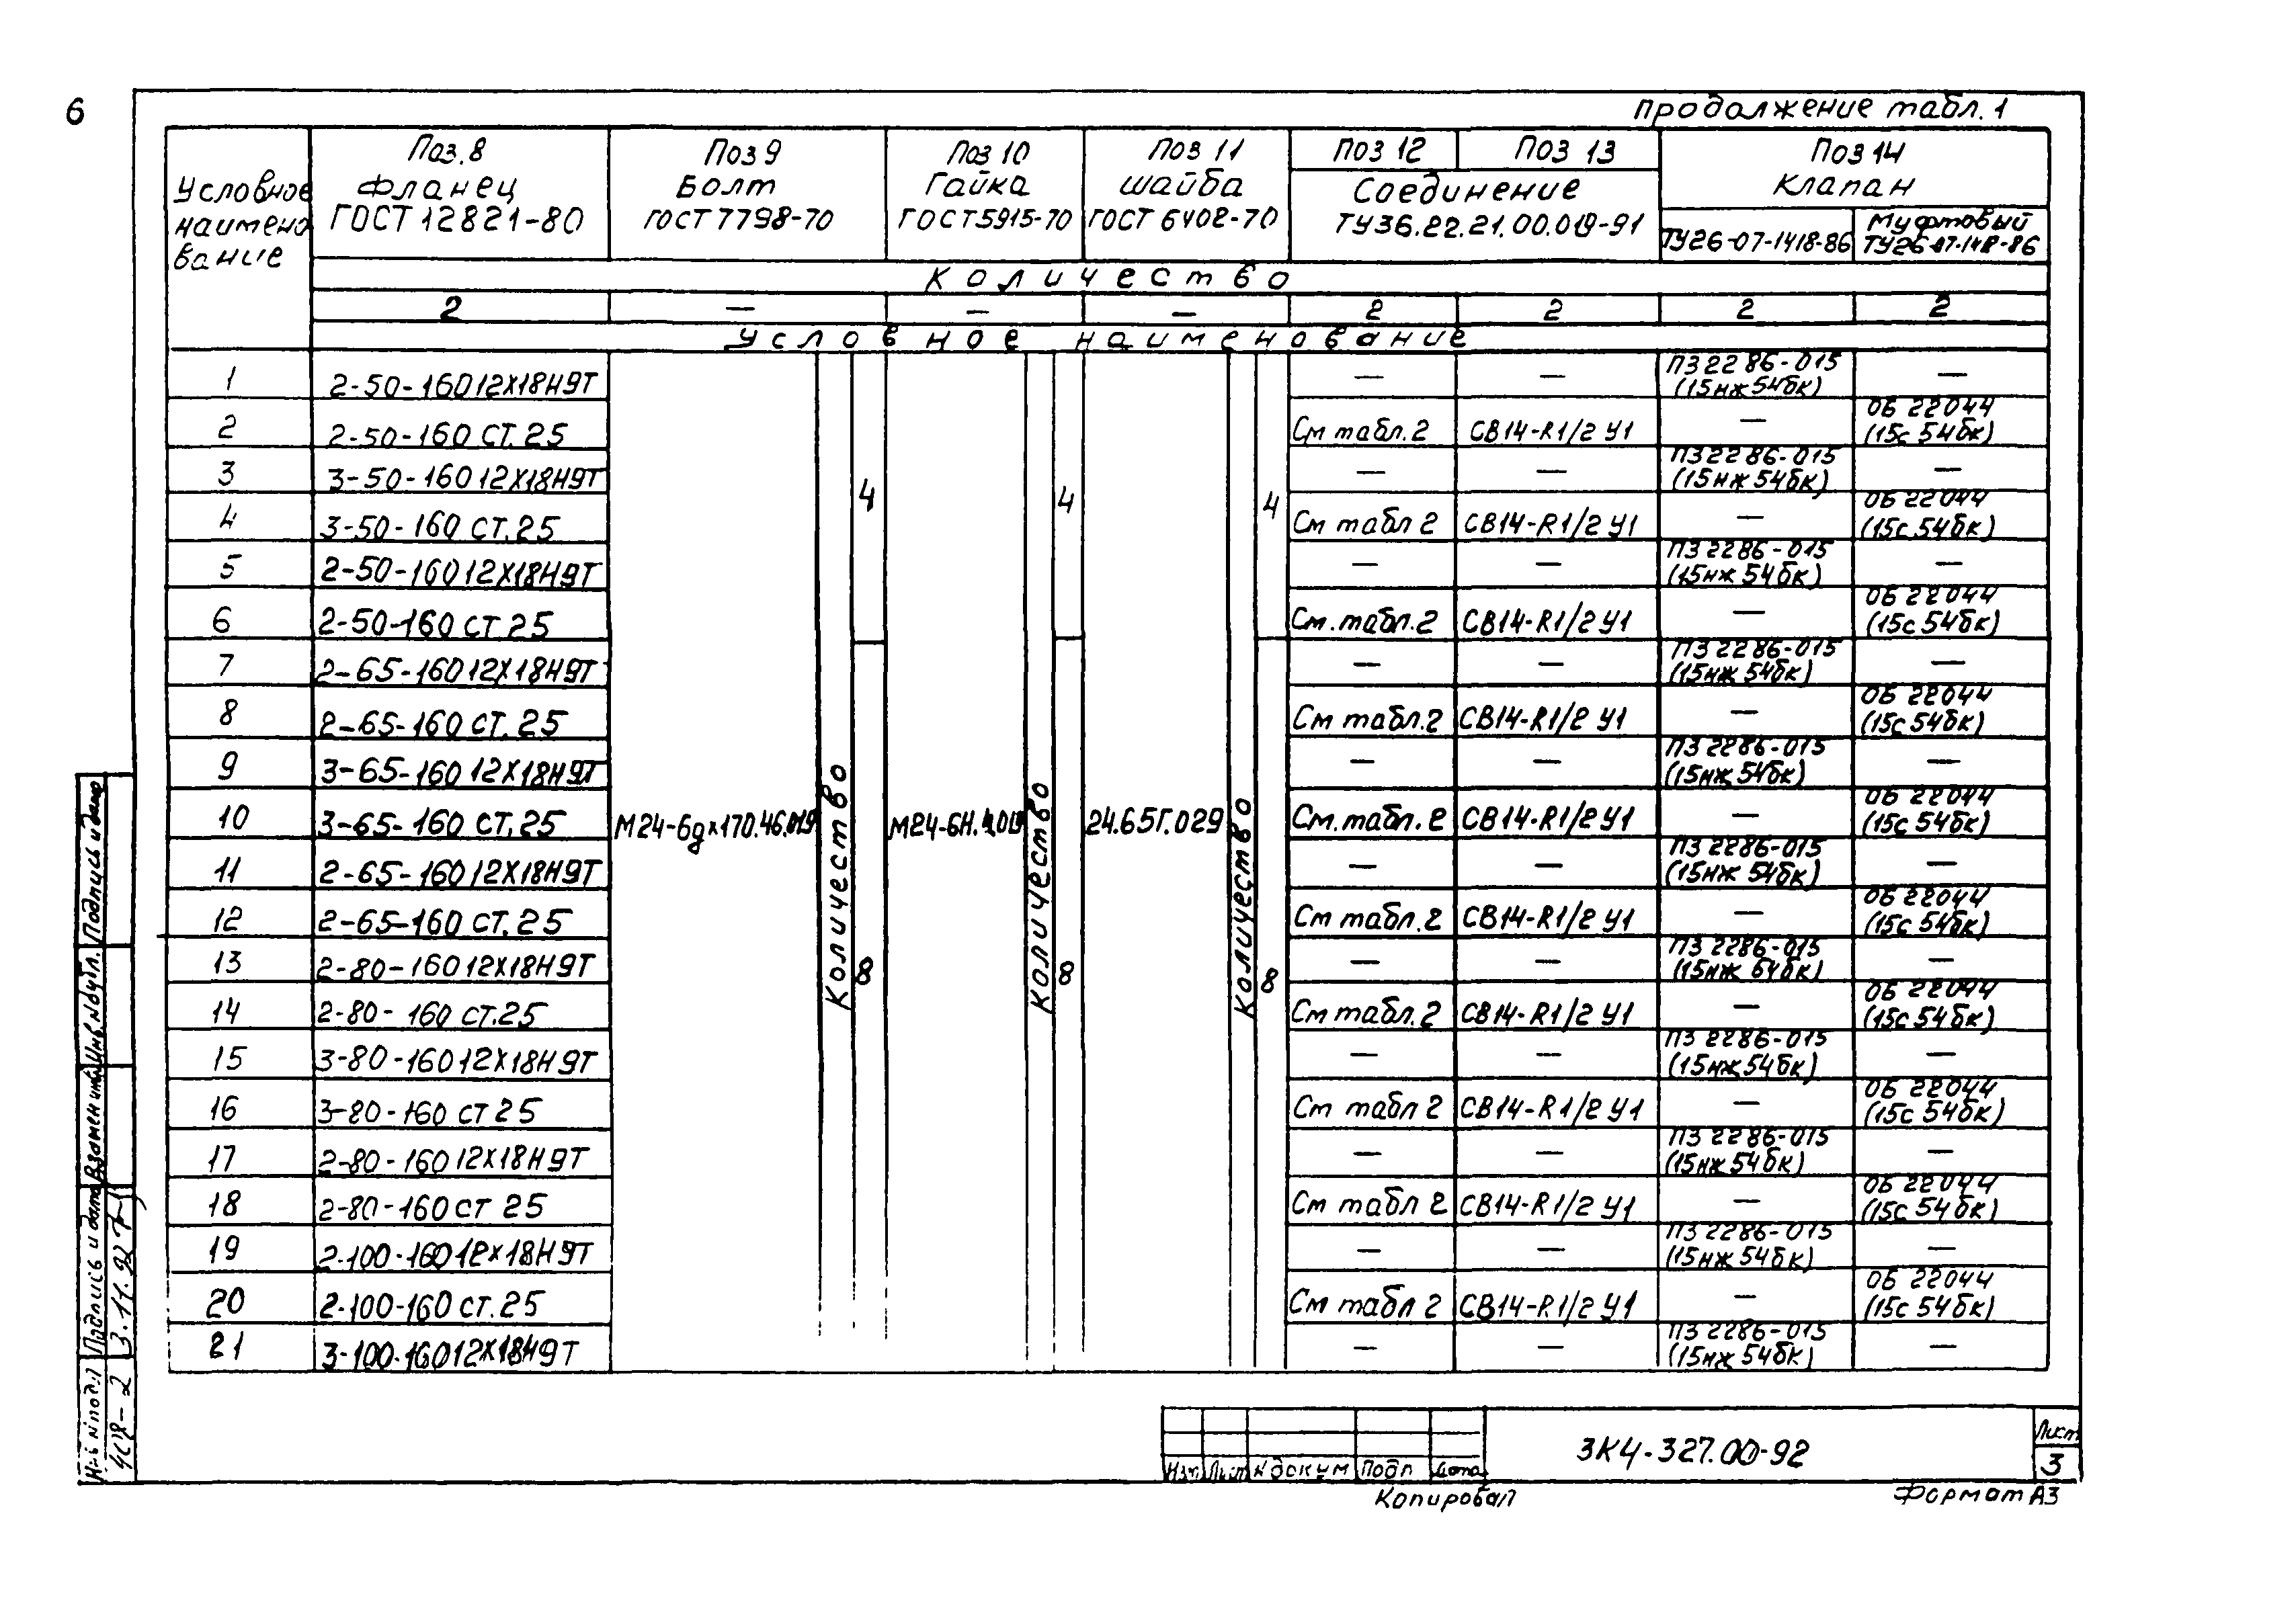 6
продолжение табл. 1
Условное наимено вание
Поз. 8 Фланец ГОСТ 12821-80
Поз 9 Болт ГОСТ 7798-70
Поз 10 Гайка ГОСТ 5915-70
Поз 11 Шайба ГОСТ 6402-70
Поз 12 Поз 13
Соединение ТУ36.22.21.00.019-91
Поз 14 Клапан
ТУ26-07-1418-86
Муфтовый ТУ26-07-1418-86
Количество
2 — — — 2 2 2 2
Условное наименование
1 2-50-160 12Х18Н9Т — — ПЗ 22 86-015 (15нж 54бк) —
2 2-50-160 СТ. 25 См табл. 2 СВ14-R1/2 У1 — ОБ 22044 (15с 54бк)
3 3-50-160 12Х18Н9Т — — ПЗ 22 86-015 (15нж 54бк) —
4 3-50-160 СТ. 25 См табл 2 СВ14-R1/2 У1 — ОБ 22044 (15с 54бк)
5 2-50-160 12Х18Н9Т — — ПЗ 2286-015 (15нж 54бк) —
6 2-50-160 СТ 25 См. табл. 2 СВ14-R1/2 У1 — ОБ 22044 (15с 54бк)
7 2-65-160 12Х18Н9Т — — ПЗ 2286-015 (15нж 54бк) —
8 2-65-160 СТ. 25 См табл. 2 СВ14-R1/2 У1 — ОБ 22044 (15с 54бк)
9 3-65-160 12Х18Н9Т — — ПЗ 2286-015 (15нж 54бк) —
10 3-65-160 СТ. 25 См. табл. 2 СВ14-R1/2 У1 — ОБ 22044 (15с 54бк)
11 2-65-160 12Х18Н9Т — — ПЗ 2286-015 (15нж 54бк) —
12 2-65-160 СТ. 25 См табл. 2 СВ14-R1/2 У1 — ОБ 22044 (15с 54бк)
13 2-80-160 12Х18Н9Т — — ПЗ 2286-015 (15нж 64бк) —
14 2-80-160 СТ. 25 См табл. 2 СВ14-R1/2 У1 — ОБ 22044 (15с 54бк)
15 3-80-160 12Х18Н9Т — — ПЗ 2286-015 (15нж 54бк) —
16 3-80-160 СТ 25 См табл 2 СВ14-R1/2 У1 — ОБ 22044 (15с 54бк)
17 2-80-160 12Х18Н9Т — — ПЗ 2286-015 (15нж 54бк) —
18 2-80-160 СТ 25 См табл 2 СВ14-R1/2 У1 — ОБ 22044 (15с 54бк)
19 2-100-160 12Х18Н9Т — — ПЗ 2286-015 (15нж 54бк) —
20 2-100-160 СТ. 25 См табл 2 СВ14-R1/2 У1 — ОБ 22044 (15с 54бк)
21 3-100-160 12Х18Н9Т — — ПЗ 2286-015 (15нж 54бк) —
М24-6g×170.46.019 Количество 4 8
М24-6Н. Количество 4 8
24.65Г.029 Количество 4 8
Подпись и дата
Инв. № дубл.
Взамен инв
Подпись и дата 3.11.92
Инв № подл 408-2
Изм Лист № докум Подп Дата
3К4-327.00-92
Лист
3
Копировал
Формат А3